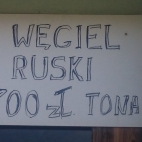 WĘGIEL
RUSKI
700 zł TONA